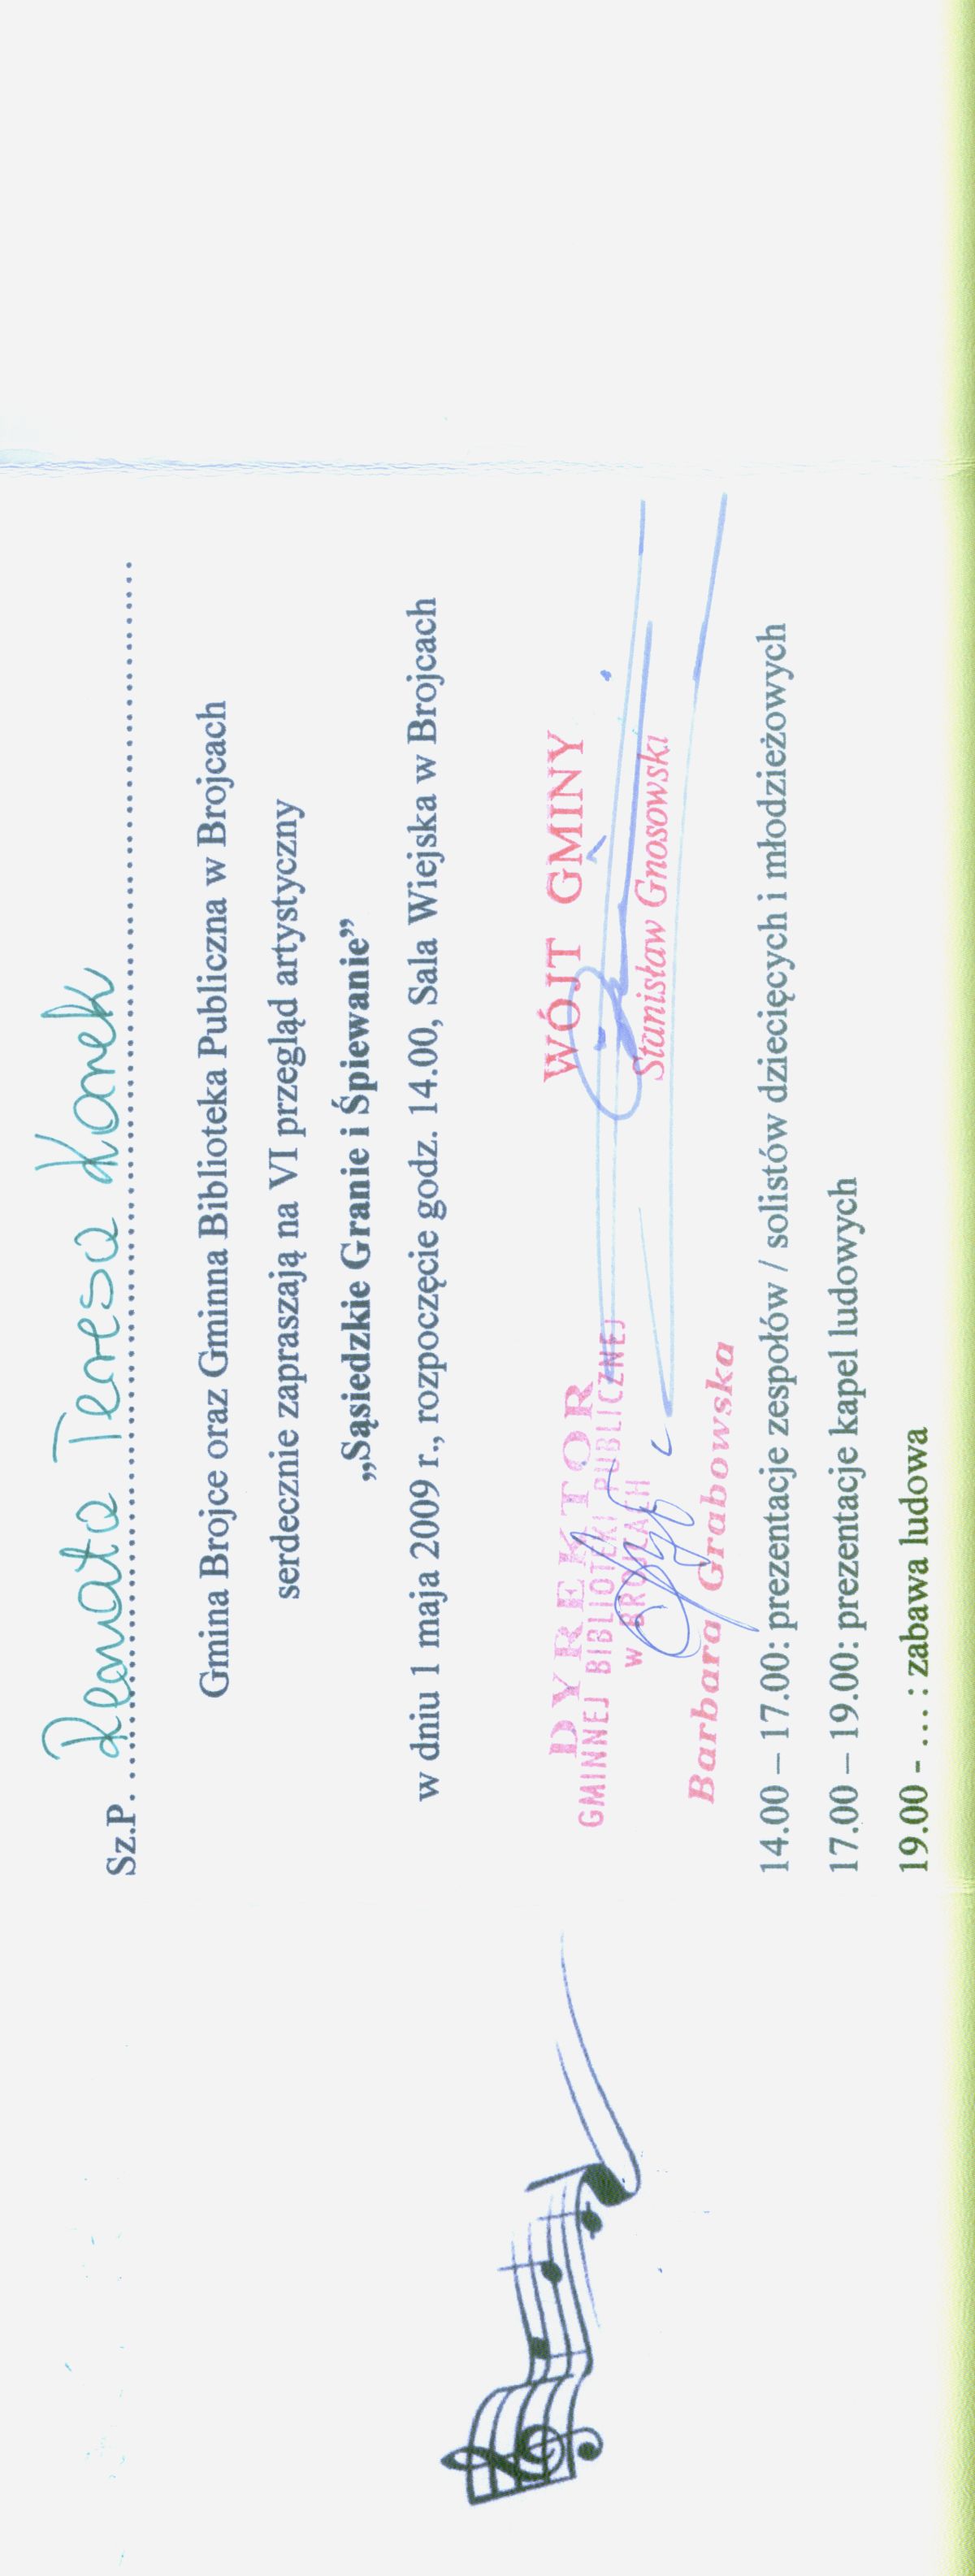 Sz.P. Renata Teresa Korek
Gmina Brojce oraz Gminna Biblioteka Publiczna w Brojcach
serdecznie zapraszają na VI przegląd artystyczny
„Sąsiedzkie Granie i Śpiewanie”
w dniu 1 maja 2009 r., rozpoczęcie godz. 14.00, Sala Wiejska w Brojcach
DYREKTOR
GMINNEJ BIBLIOTEKI PUBLICZNEJ
W BROJCACH
Barbara Grabowska
WÓJT GMINY
Stanisław Gnosowski
14.00 – 17.00: prezentacje zespołów / solistów dziecięcych i młodzieżowych
17.00 – 19.00: prezentacje kapel ludowych
19.00 - … : zabawa ludowa